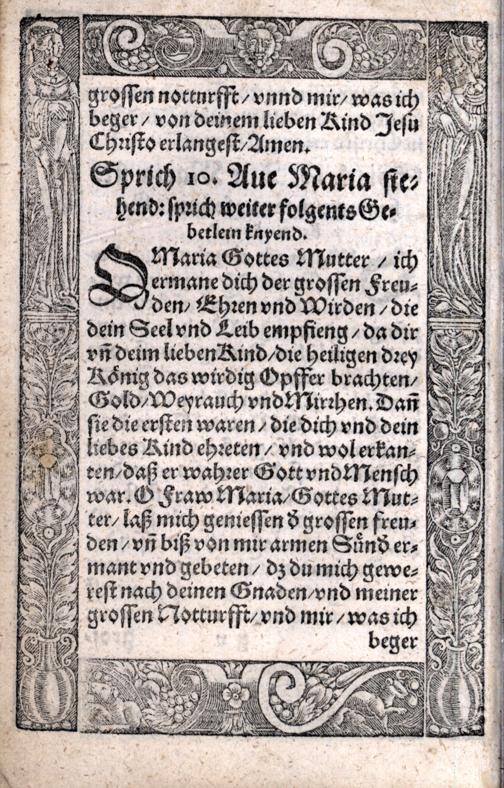 grossen notturfft/ vnnd mir/ was ich
beger/ von deinem lieben Kind Jesu
Christo erlangest/ Amen.
Sprich 10. Aue Maria ste-
hend: sprich weiter folgents Ge-
betlein knyend.
O Maria Gottes Mutter / ich
ermane dich der grossen Freu-
den/ Ehren vnd Wirden/ die
dein Seel vnd Leib empfieng/ da dir
vñ deim lieben Kind/ die heiligen drey
König das wirdig Opffer brachten/
Gold/ Weyrauch vnd Mirrhen. Dañ
sie die ersten waren/ die dich vnd dein
liebes Kind ehreten/ vnd wol erkan-
ten/ daß er wahrer Gott vnd Mensch
war. O Fraw Maria/ Gottes Mut-
ter/ laß mich geniessen d̃ grossen freu-
den/ vñ biß von mir armen Suͤnd̃ er-
mant vnd gebeten/ dz du mich gewe-
rest nach deinen Gnaden/ vnd meiner
grossen Notturfft/ vnd mir/ was ich
beger